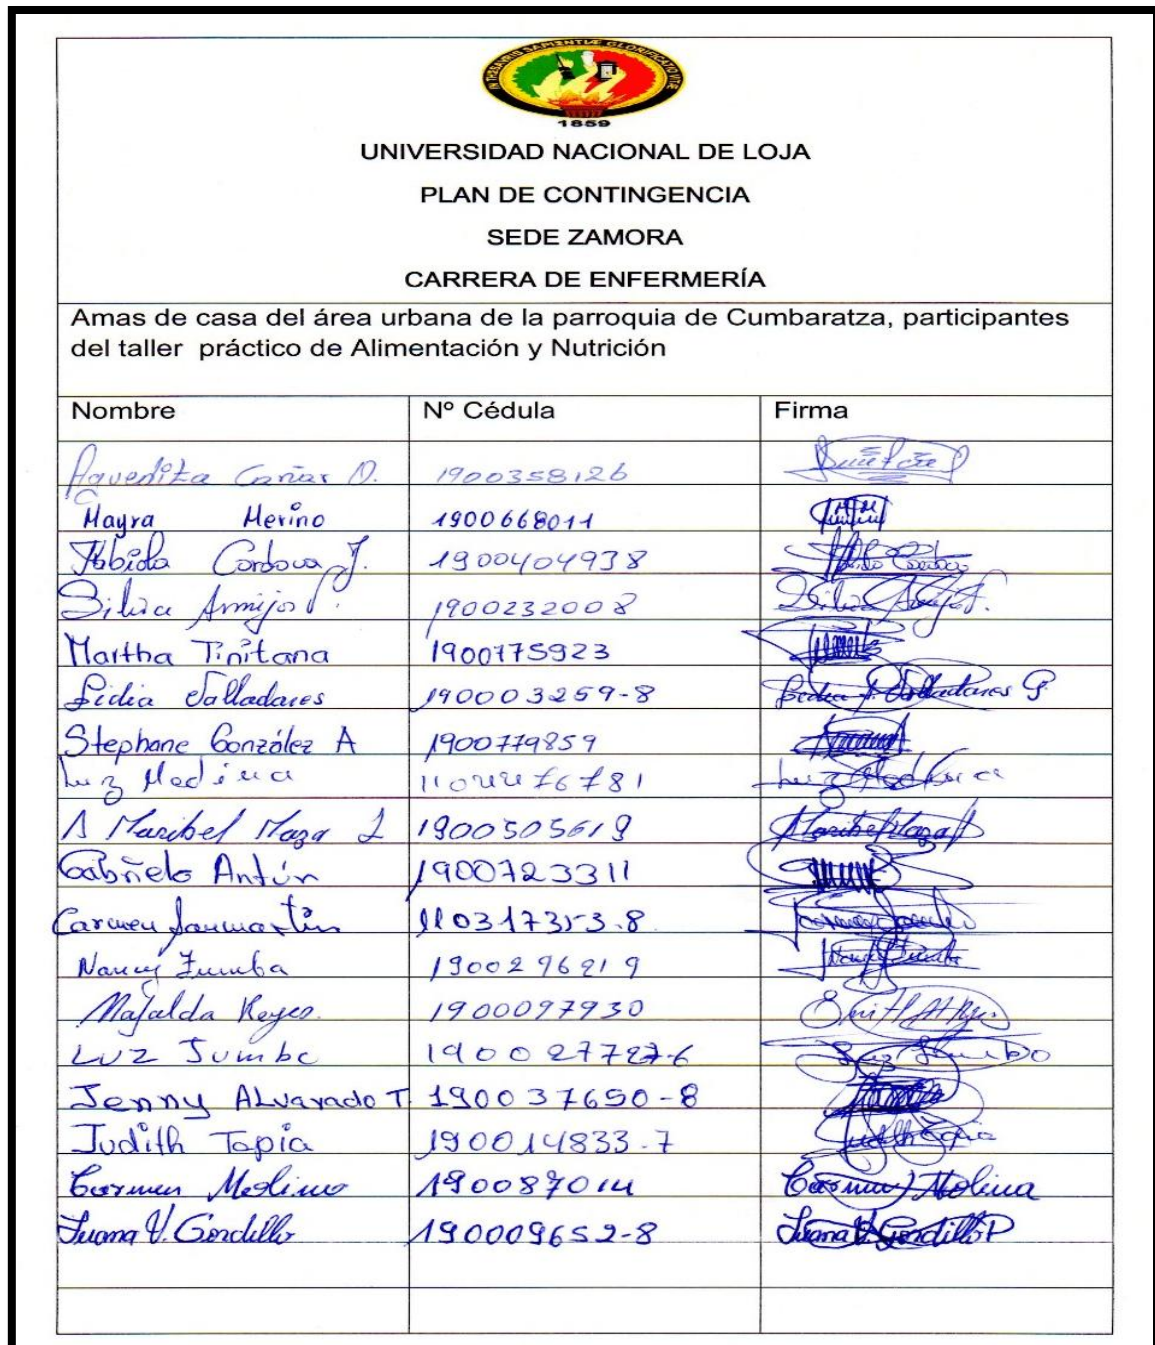 IN THESAURIS SAPIENTIAE GLORIFICATIO VITAE
1859
UNIVERSIDAD NACIONAL DE LOJA
PLAN DE CONTINGENCIA
SEDE ZAMORA
CARRERA DE ENFERMERÍA
Amas de casa del área urbana de la parroquia de Cumbaratza, participantes
del taller práctico de Alimentación y Nutrición
Nombre Nº Cédula Firma
Aguedita Cañar O. 1900358126
Mayra Merino 1900668011
Cordova J. 1900404938
Silvia Armijos 1900232008 Silvia
Martha Tinitana 1900175923
Lidia Valladares 190003259-8 Lidia Valladares G
Stephane González A 1900779859
Luz Medina Luz Medina
A Maribel Maza 1900505619 Maribel Maza
Gabriela Antún 1900723311
Carmen Sanmartin 110317353-8
Nancy Zumba
Mafalda Reyes. 1900097930
LUZ Jumbo Luz Jumbo
Jenny Alvarado T 190037650-8
Judith Tapia 190014833-7 Judith Tapia
Carmen Molina Carmen Molina
Juana V. Gordillo 190009652-8 Juana V. Gordillo P